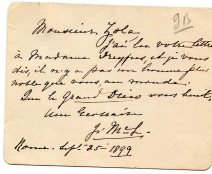 9B
Monsieur Zola
J'ai lu votre lettre
à Madame Dreyfus et je vous
dis, il n'y a pas un homme plus
noble que vous, au monde.
Que le Grand Dieu vous bénit,
Une
Rome - Sept. 25 - 1899